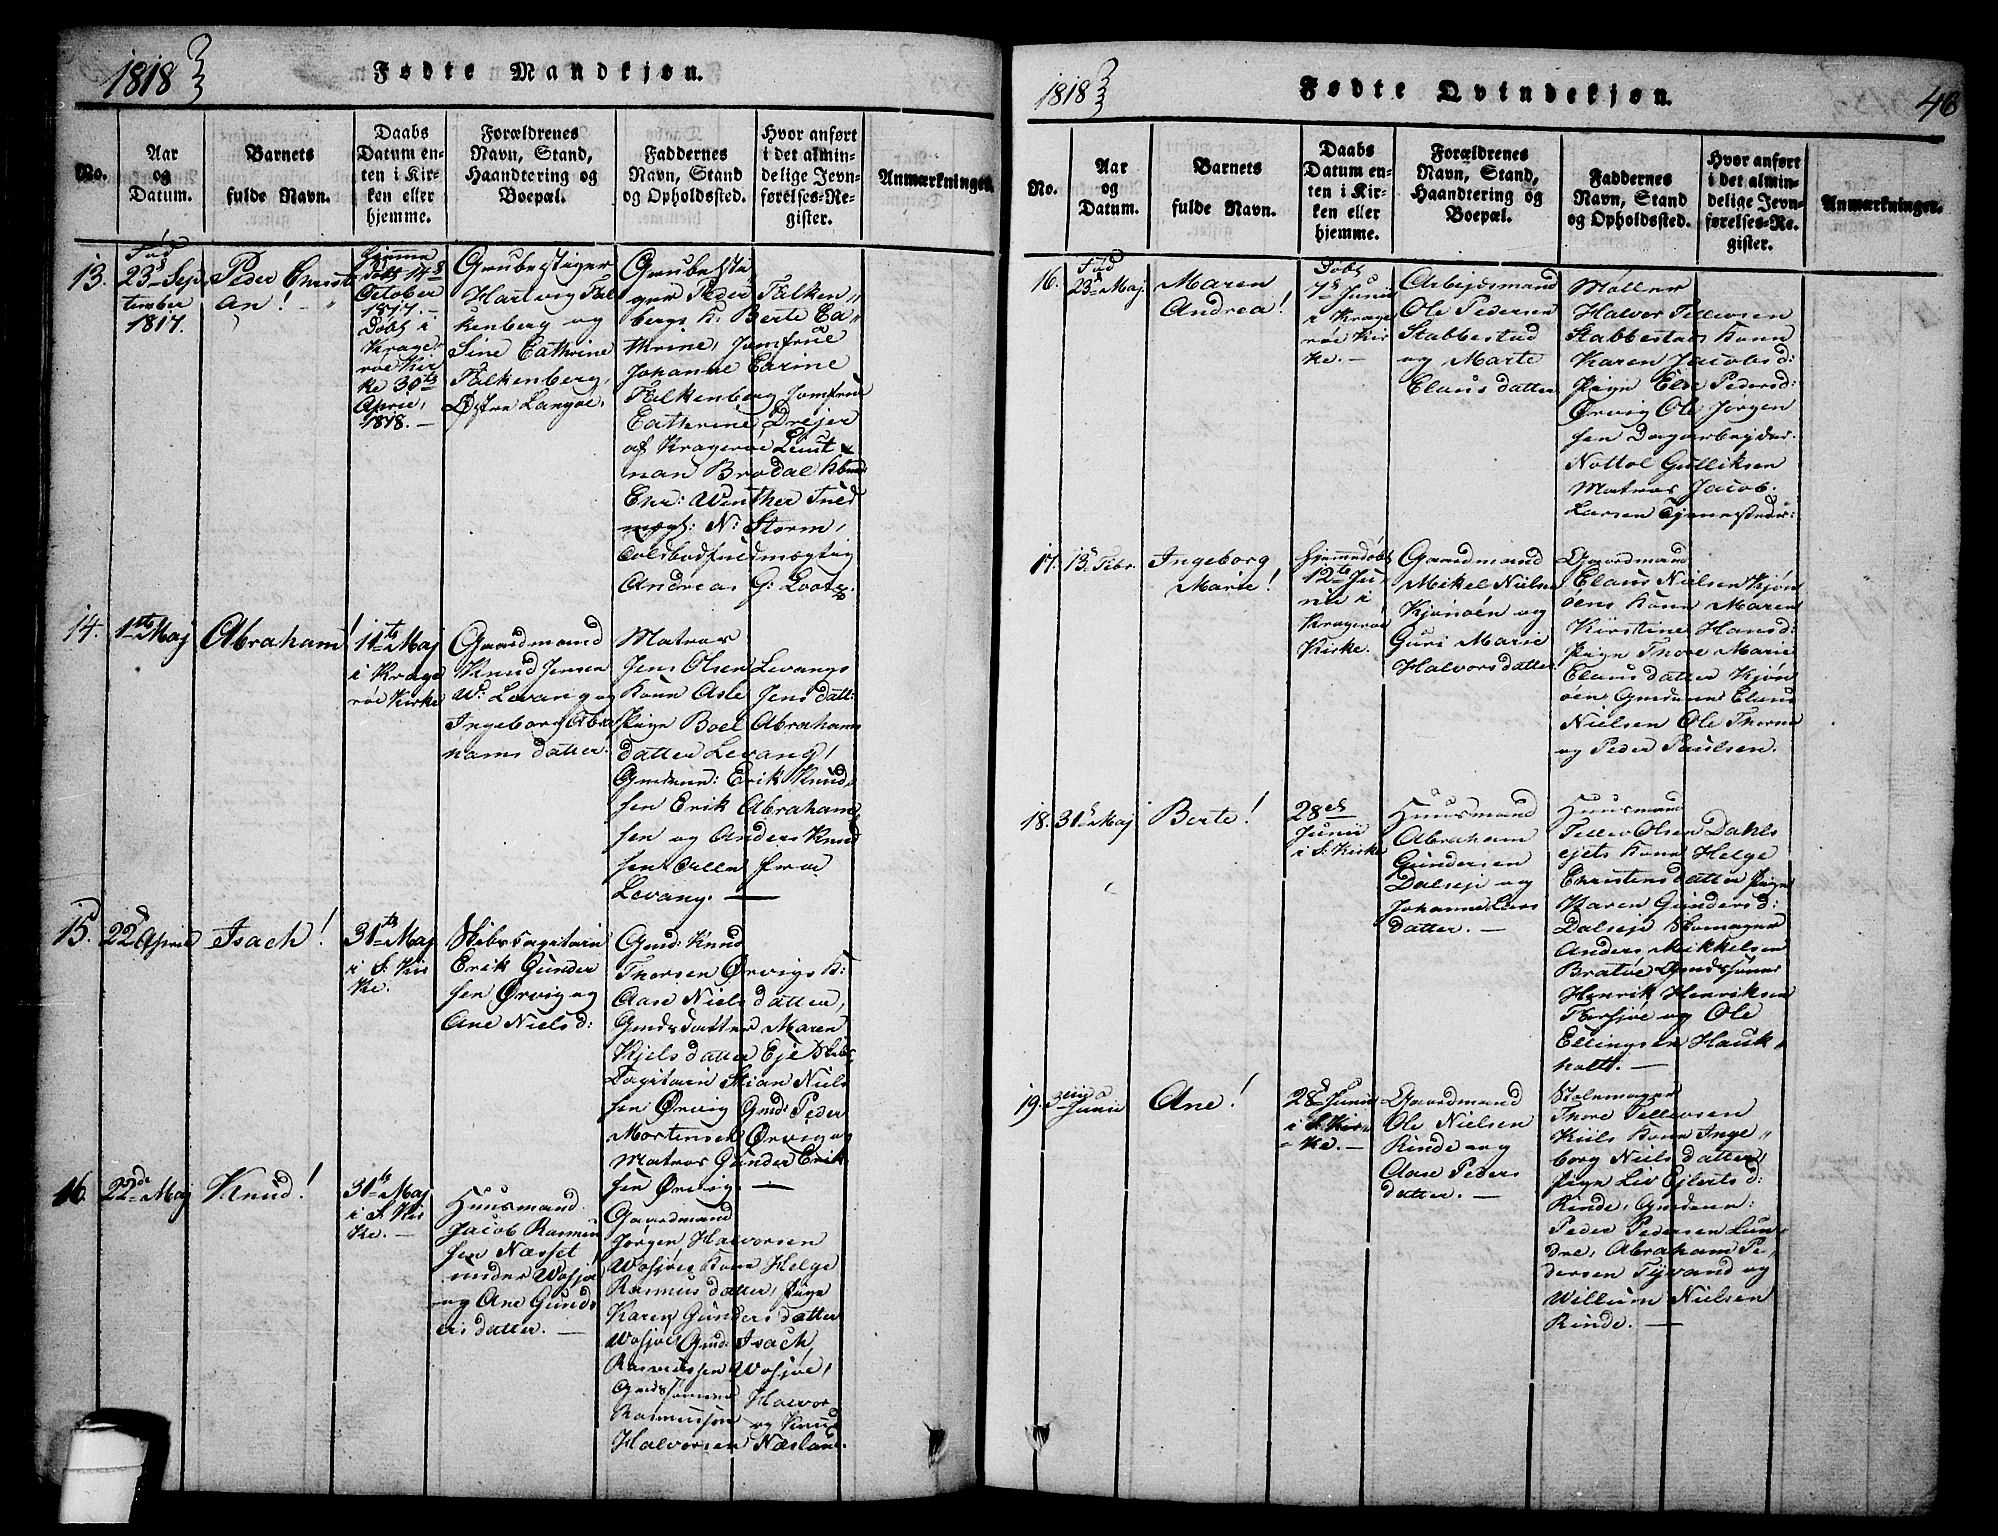 1818
Fødte Mandkjøn.
No.
Aar
og
Datum.
Barnets
fulde Navn.
Daabs
Datum en-
ten i Kir-
ken eller
hjemme.
Forældrenes
Navn, Stand,
Haandtering og
Boepæl.
Faddernes
Navn, Stand
og Opholdssted.
Hvor anført
i det almin-
delige Jevn-
førelses-Re-
gister.
Anmærkninger.
13.
Fød
23d Sep
tember
1817.
Peder Christi
an!
Hjemme
døbt 14d
October
1817.
Døbt i
Krage
røe Kir
ke 30te
April
1818.
Grubestiger
Hartvig Fal
kenberg og
Sine Cathrine
Falkenberg,
Østre Langøe.
Grubesti
ger Peder Falken
bergs K: Berte Ca
thrine, Jomfrue
Johanne Carine
Falkenberg Jomfrue
Cathrine Drejer
af Kragerøe Leut
nan Brodal
Chr: Winther Fuld
mægt: N: Storm,
Toldbodfuldmægtig
Andreas
14.
1ste Maj
Abraham!
11te Maj
i Krage
røe Kirke
Gaardmand
Knud Jensen
W: Levang og
Ingeborg Abra
hams datter.
Matros
Jens Olsen Levangs
Kone Asle Jens datt:
Pige Boel Abrahams
datter Levang,
Gmdmen: Erik Knud
sen Erik Abraham
sen og Anders Knud
sen alle fra
Levang.
15.
22d April
Isach!
31te Maj
i S. Kir
ke.
Skibscapitain
Erik Gunder
sen Ørvig og
Ane Niels d:
Gmd: Knud
Thorsen Ørvigs K:
Aase Niels datter,
Gmdsdatter Maren
Kjels datter Eje Skibs
Capitain Stian Niels
sen Ørvig Gmd: Peder
Mortensen Ørvig og
Matros Gunder Erik
sen Ørvig.
16.
22de Maj
Knud!
31te Maj
i S. Kir
ke.
Huusmand
Jacob Rasmus
sen Næsset
under Wosjøe
og Ane Gund
ers datter.
Gaardmand
Jørgen Halvorsen
Wosjøes Kone Helge
Rasmus datter, Pige
Karen Gunders datter
Wosjøe Gmd: Isach
Rasmussen Wosjøe,
Gmdssønner Halvor
Rasmussen og Knud
Halvorsen Næsland.
1818
Fødte Qvindekjøn.
48
No.
Aar
og
Datum.
Barnets
fulde Navn.
Daabs
Datum en-
ten i Kir-
ken eller
hjemme.
Forældrenes
Navn, Stand,
Haandtering og
Boepæl.
Faddernes
Navn, Stand
og Opholdssted.
Hvor anført
i det almin-
delige Jevn-
førelses-Re-
gister.
Anmærkninger.
16.
Fød
23d Maj
Maren
Andrea!
Døbt
7d Junii
i Krage
røe Kir
ke.
Arbejdsmand
Ole Pedersen
Stabbestad
og Marte
Claus datter
Møller
Halvor Tellevsen
Stabbestads Kone
Karen Jacobs d:
Pige Else Peders d:
Ørvig Ole Jørgen
sen Dagarbejder
Nottol Gulliksen
Matros Jacob
Larsen
17.
13. Febr.
Ingeborg
Marie!
Hjemmedøbt
12te Ju
nii i
Kragerøe
Kirke.
Gaardmand
Mikel Nielsen
Kjønøen og
Guri Marie
Halvorsdatter
Gaardmand
Claus Nielsen Kjøn
øens Kone Maren
Kirstine Hans d:
Pige Thore Marie
Claus datter Kjøn
øen Gmdmen: Claus
Nielsen Ole Thorsen
og Peder Paulsen.
18.
31t Maj
Berte!
28de
Junii
i S. Kirke
Huusmand
Abraham
Gundersen
Dalseje og
Johanne Lars
datter.
Huusmand
Tellev Olsen Dahls
ejets Kone Helge
Christens datter Pige
Karen Gunders d:
Dalseje Skomager
Anders Mikkelsen
Bratøe Gmdssønner
Henrik Henriksen
Torsjøe og Ole
Ellingsen Hauk
holt.
19.
3die
Junii
Ane!
28d Junii
i S. Kir
ke.
Gaardmand
Ole Nielsen
Rinde og
Aase Peders
datter.
Stolemager
Thore Tellevsen
Kiils Kone Inge
borg Niels datter,
Pige Liv Ejlerts d:
Rinde, Gmdmen:
Peder Pedersen Lun
dre, Abraham Pe
dersen Tyvand og
Willum Nielsen
Rinde.